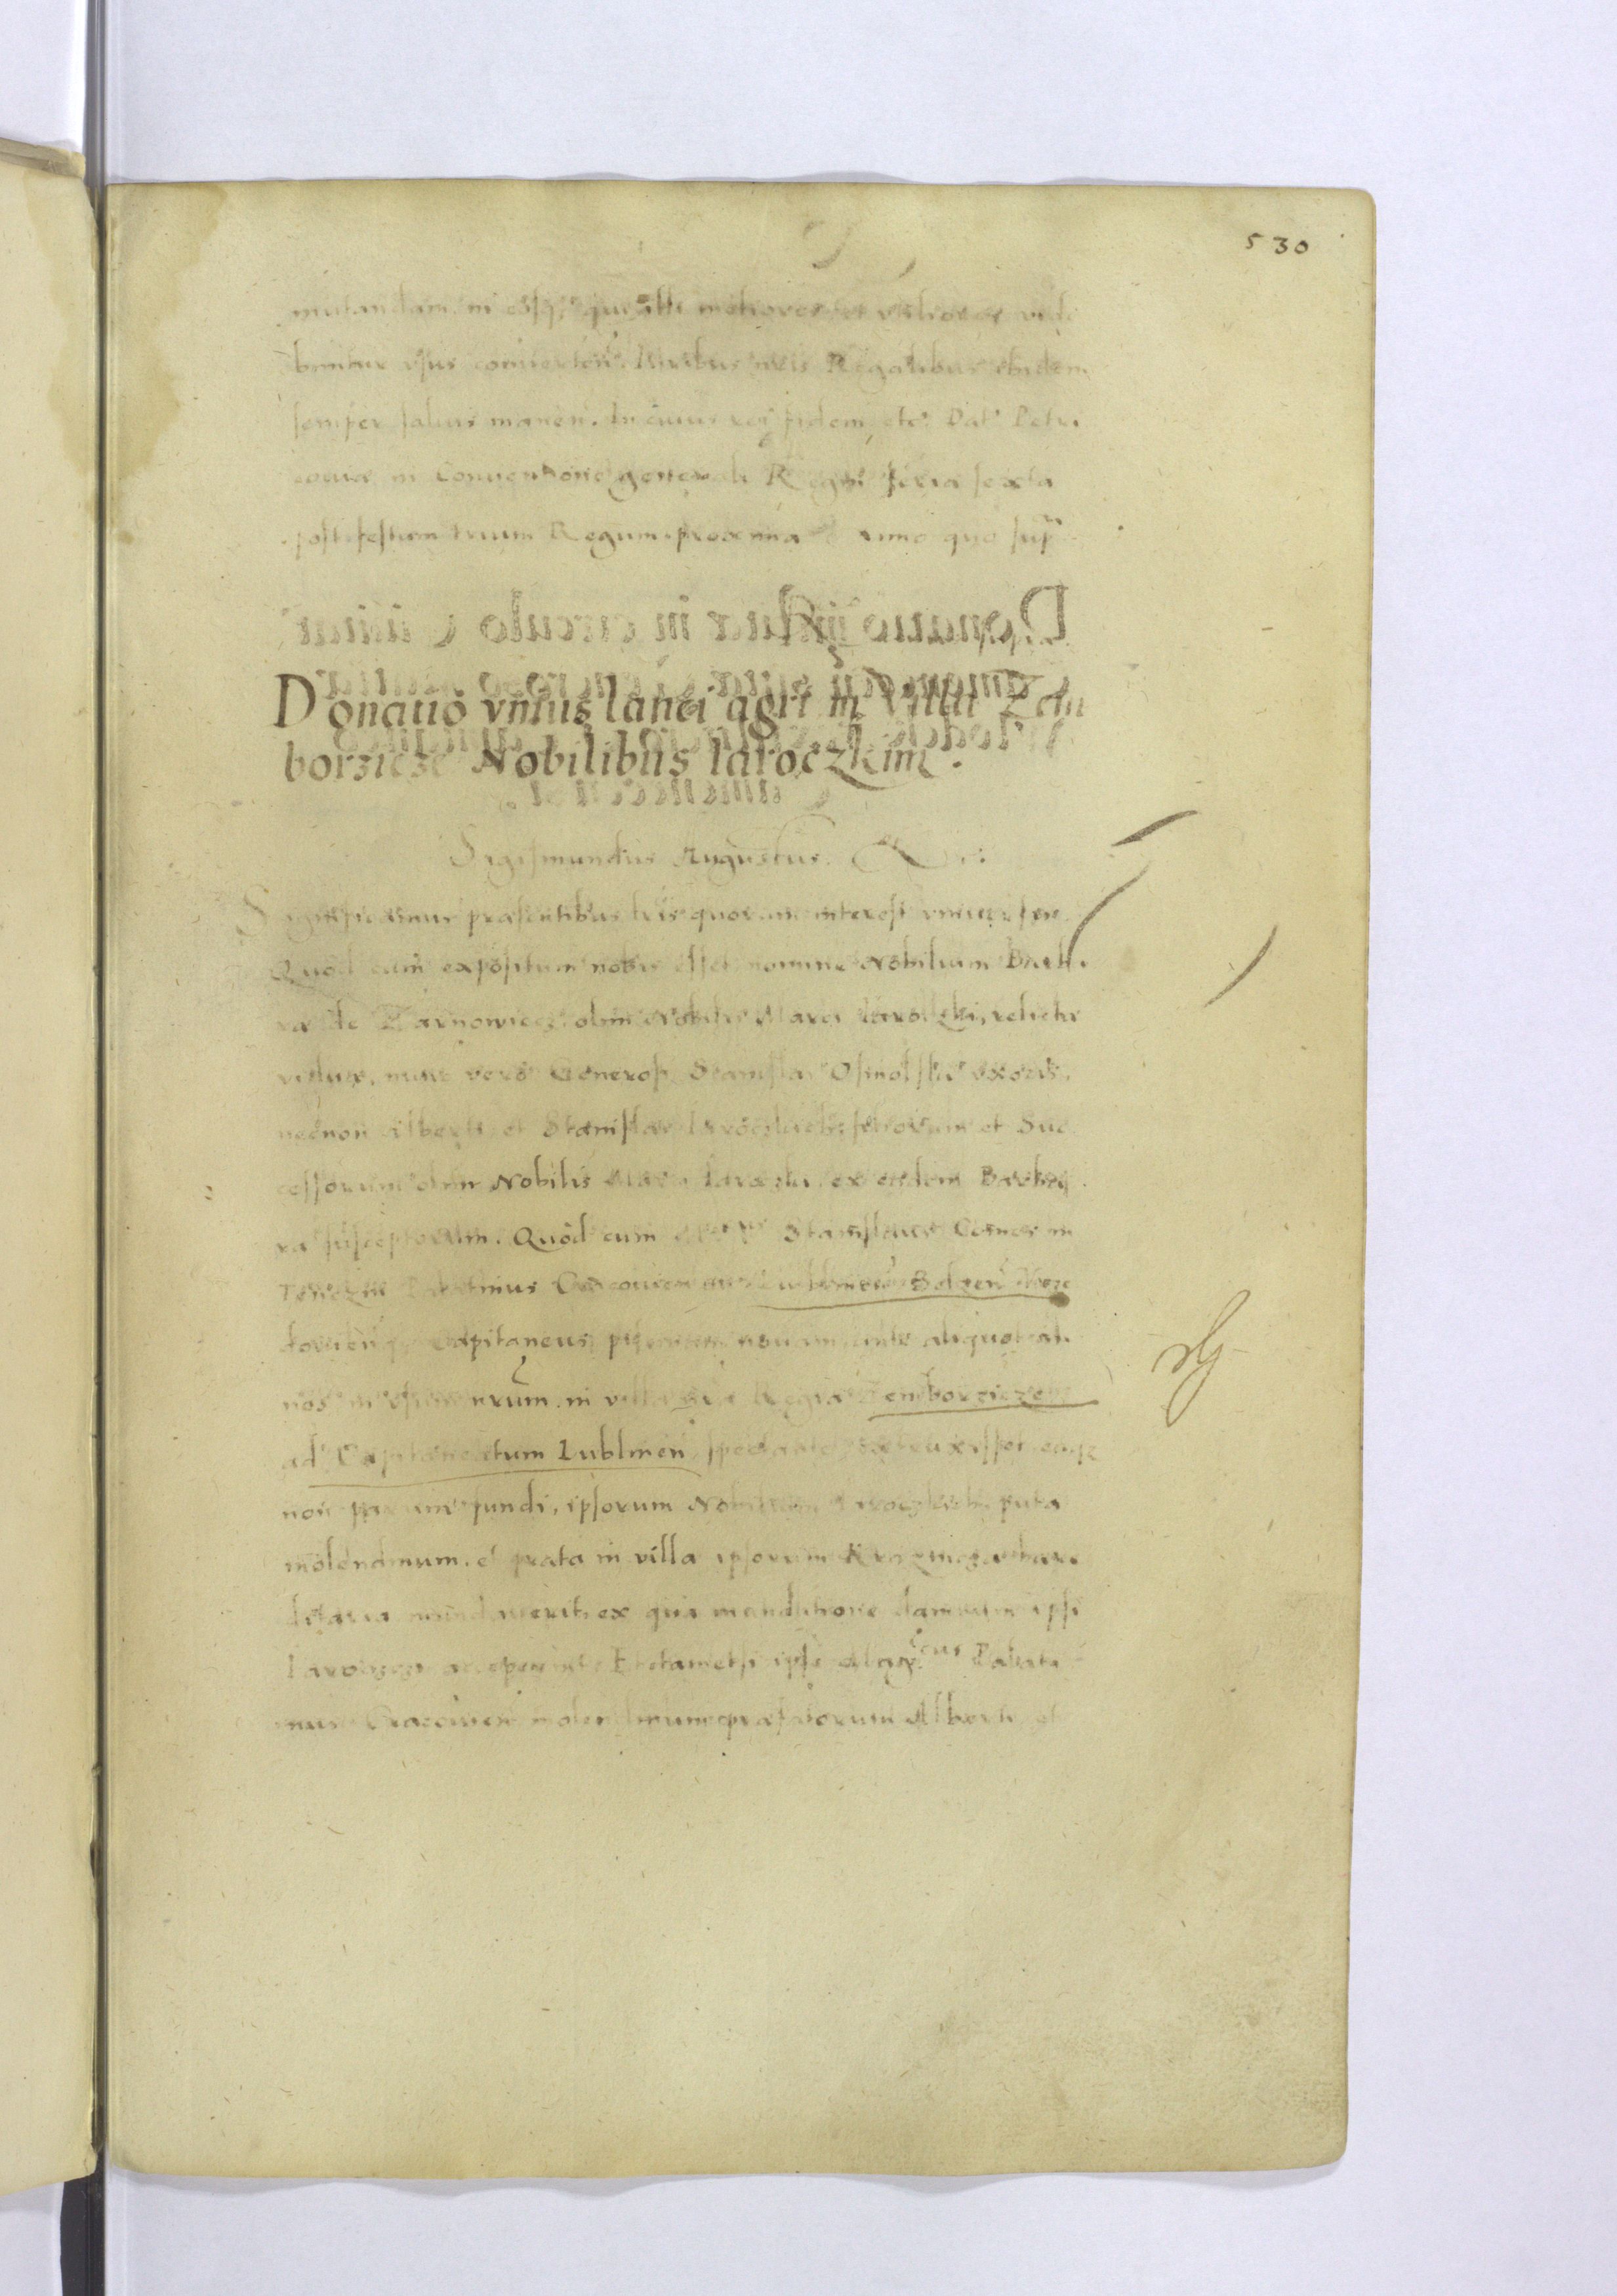 530
mutandam in eosq; qui illi meliores et utiliores vide
buntur usus convertend. Iuribus nris Regalibus ibidem
semper salvis manen. In cuius rei fidem etc. Dat. Petri
coviæ in Conventione generali Regni feria sexta
post festum trium Regum proxima Anno quo sup
Donatio unius lanei agri in Villa Zem
borzicze Nobilibus Iaroczkim.
Sigismundus Augustus. etc.
Significamus præsentibus lris quorum interest universis
Quod cum expositum nobis esset nomine Nobilium Barba
ræ de Tarnowiecz olim Nobilis Marci Iaroczki, relictæ
viduæ, nunc vero Generosi Stanislai uxoris,
necnon Alberti et Stanislai Iaroczkich filiorum et Suc
cessorum olim Nobilis Marci Iaroczki ex eadem Barba
ra susceptorum. Quod cum Stanislaus Comes in
Tenczin Palatinus Cracovien ac Lublinen Belzen
Capitaneus piscinam novam ante aliquot an
nos in usum nrum in villa nra Regia Zemborzicze
ad Capitaneatum Lublinen spectante extruxisset eaq;
non parum fundi, ipsorum Nobilium Iaroczkich puta
molendinum et prata in villa ipsorum hære
ditaria inundaverit ex qua inundatione damnum ipsi
Iaroczczy acceperint Et tametsi ipse Mag.cus Palati
nus Cracovien molendinum præfatorum Alberti et